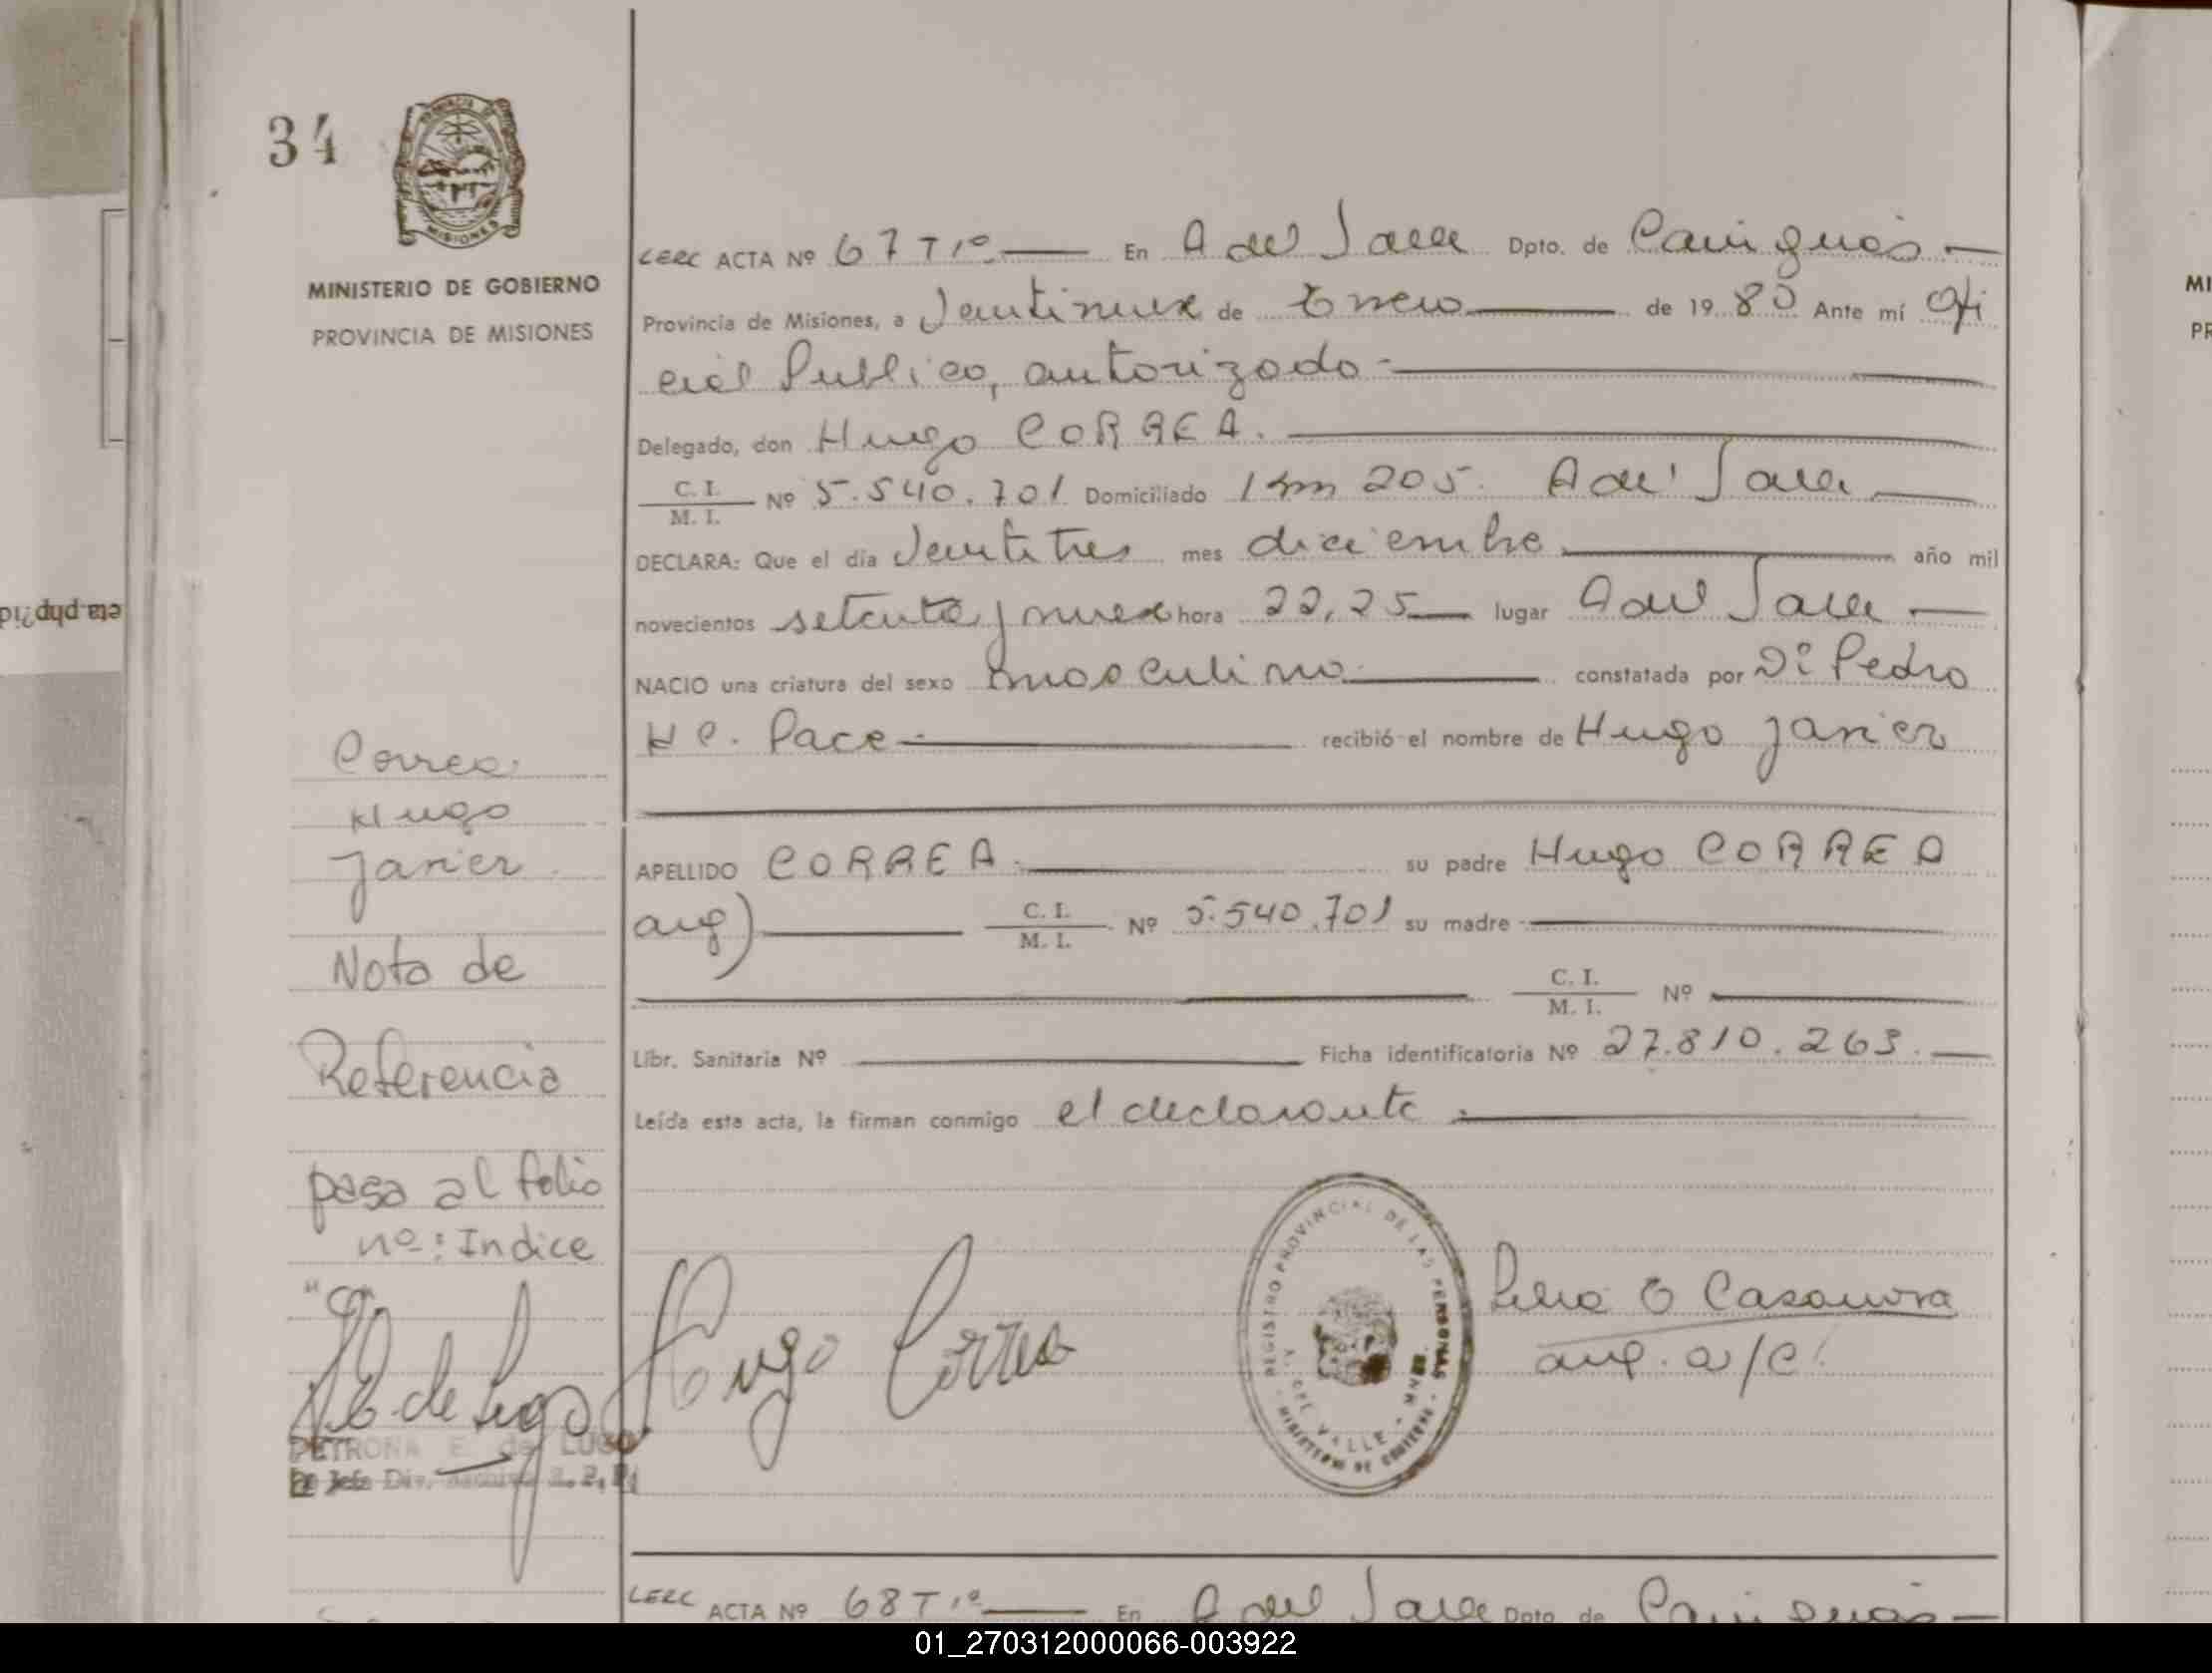 34
MINISTERIO DE GOBIERNO
PROVINCIA DE MISIONES
MISIONES
LERC ACTA Nº 67 Tº 1º En A del Valle Dpto. de Cainguás
Provincia de Misiones, a Veintinueve de Enero de 1980 Ante mí Ofi
cial Publico, autorizado
Delegado, don Hugo CORREA.
C. I.
M. I. Nº 5.540.701 Domiciliado Km 205. A del Valle
DECLARA: Que el día Veintitres mes diciembre año mil
novecientos setenta y nueve hora 22,25 lugar A del Valle
NACIO una criatura del sexo masculino constatada por Dº Pedro
H C. Pace recibió el nombre de Hugo Javier
APELLIDO CORREA su padre Hugo CORREA
arg) C. I.
M. I. Nº 5.540.701 su madre
C. I.
M. I. Nº
Libr. Sanitaria Nº Ficha identificatoria Nº 27.810.263.
Leída esta acta, la firman conmigo el declarante
Correa
Hugo
Javier
Nota de
Referencia
pasa al folio
nº: Indice
"C"
Hugo Correa
REGISTRO PROVINCIAL DE LAS PERSONAS
A. DEL VALLE - MNES
MINISTERIO DE GOBIERNO
Casanova
a/c
PETRONA E. de LUGO
Jefa Div. Archivo R. P. P.
LERC ACTA Nº 68 Tº 1º En A del Valle Dpto. de Cainguás
eta.php?id
MI
PR
01_270312000066-003922